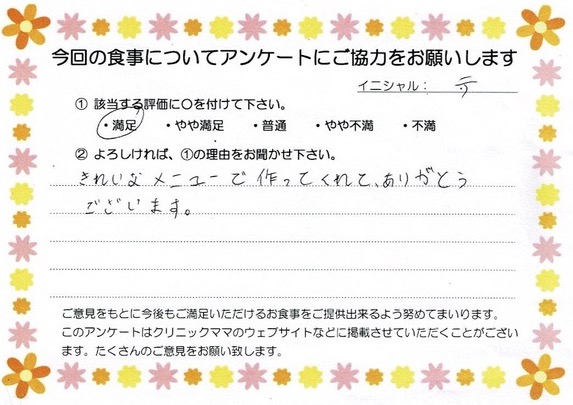 今回の食事についてアンケートにご協力をお願いします
イニシャル：
① 該当する評価に〇を付けて下さい。
・満足 ・やや満足 ・普通 ・やや不満 ・不満
② よろしければ、①の理由をお聞かせ下さい。
きれいなメニューで作ってくれて、ありがとう
ございます。
ご意見をもとに今後もご満足いただけるお食事をご提供出来るよう努めてまいります。
このアンケートはクリニックママのウェブサイトなどに掲載させていただくことがござい
ます。たくさんのご意見をお願い致します。